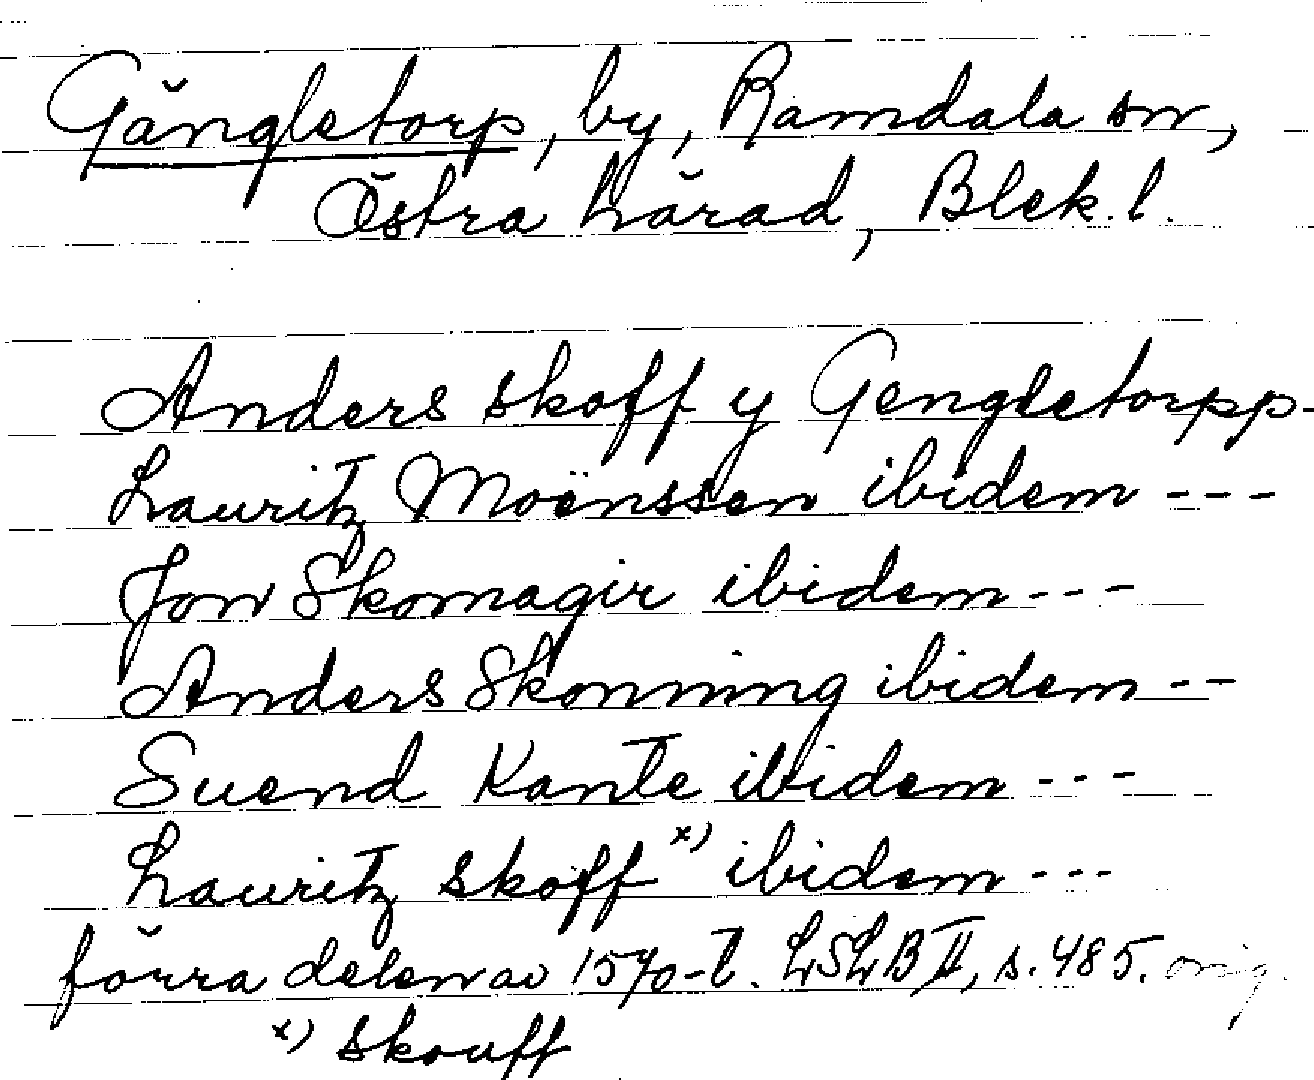 Gängletorp, by, Ramdala sn,
Östra härad, Blek. l.
Anders skoff y Gengletorpp-
Lauritz Moënssen ibidem ---
Jon Skomagir ibidem ---
Anders Skonning ibidem --
Suend Kante ibidem ---
Lauritz skoff x) ibidem ---
förra delen av 1570-t. LSLB II, s. 485. orig.
x) skouff